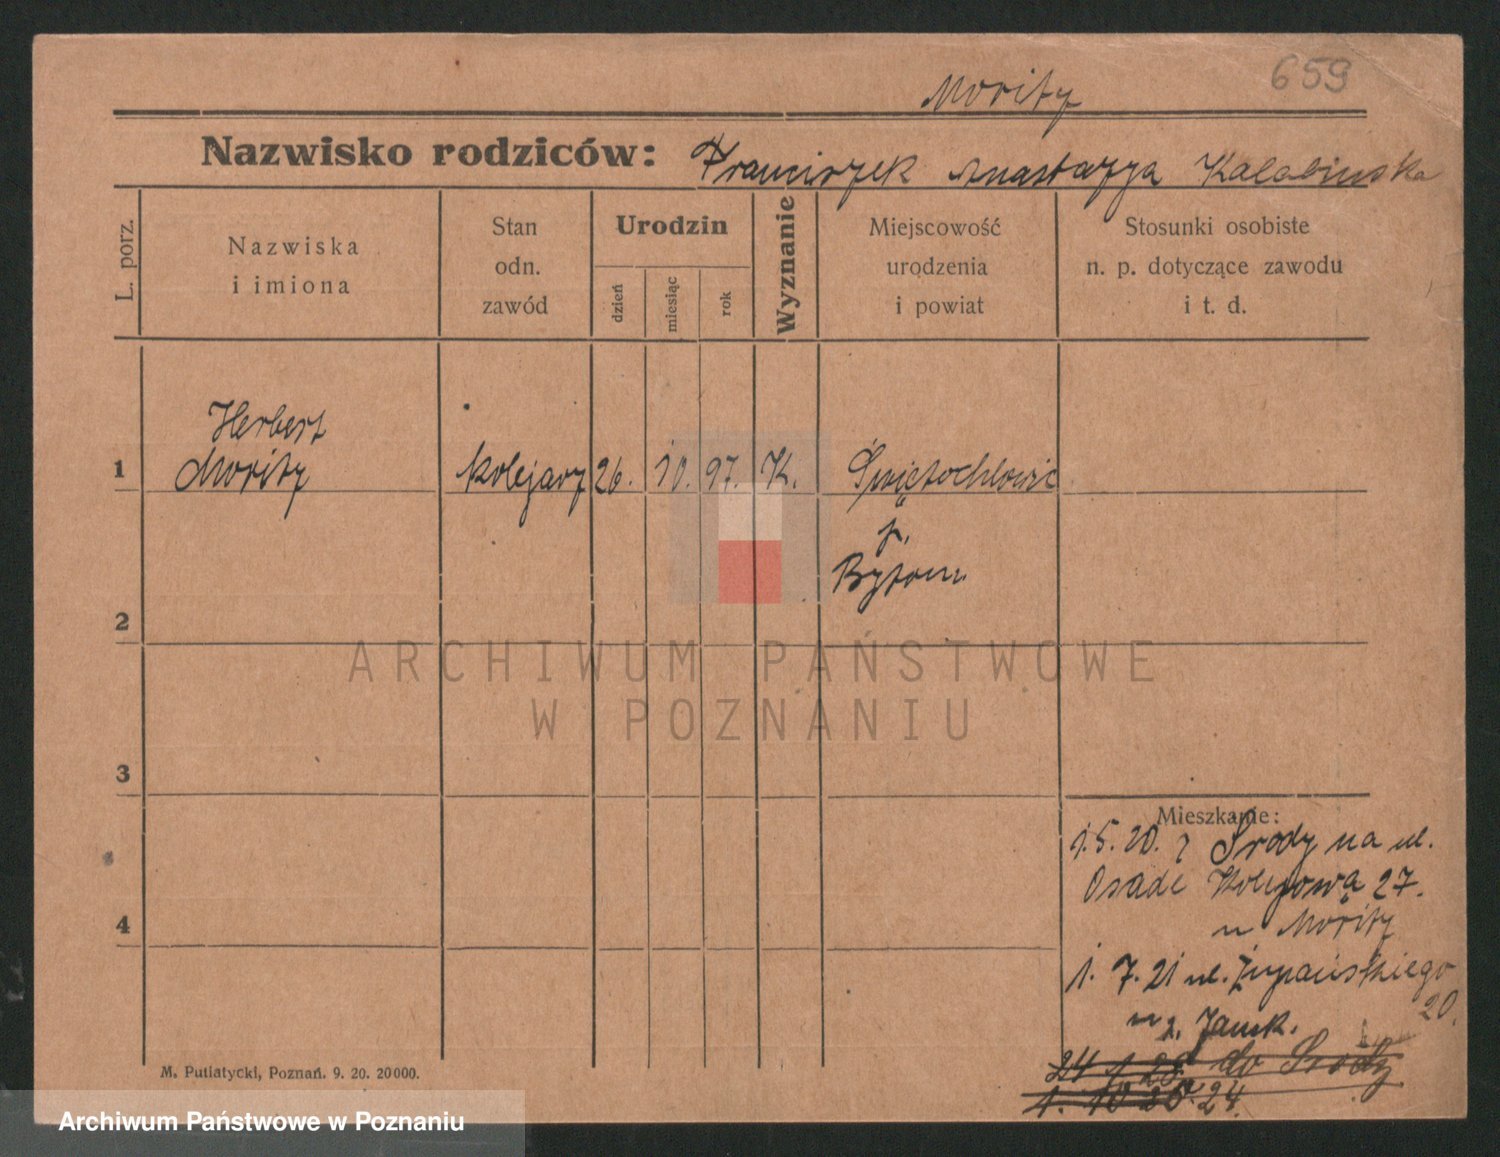 659
Moritz
Nazwisko rodziców: Franciszek Anastazya Kalabinska
L. porz.
Nazwiska
i imiona
Stan
odn.
zawód
Urodzin
dzień
miesiąc
rok
Wyznanie
Miejscowość
urodzenia
i powiat
Stosunki osobiste
n. p. dotyczące zawodu
i t. d.
Herbert
1 Moritz kolejarz 26. 10. 97. K. Świętochłowic
p.
Bytom
2
ARCHIWUM PAŃSTWOWE
W POZNANIU
3
Mieszkanie:
1.5.20. z Środy na ul.
Osade Kolejową 27.
4
u Moritz
1. 7. 21 ul. Żupańskiego
20.
u Jamk.
24 1 25 do Środy
1. 10 24.
M. Putiatycki, Poznań. 9. 20. 20000.
Archiwum Państwowe w Poznaniu